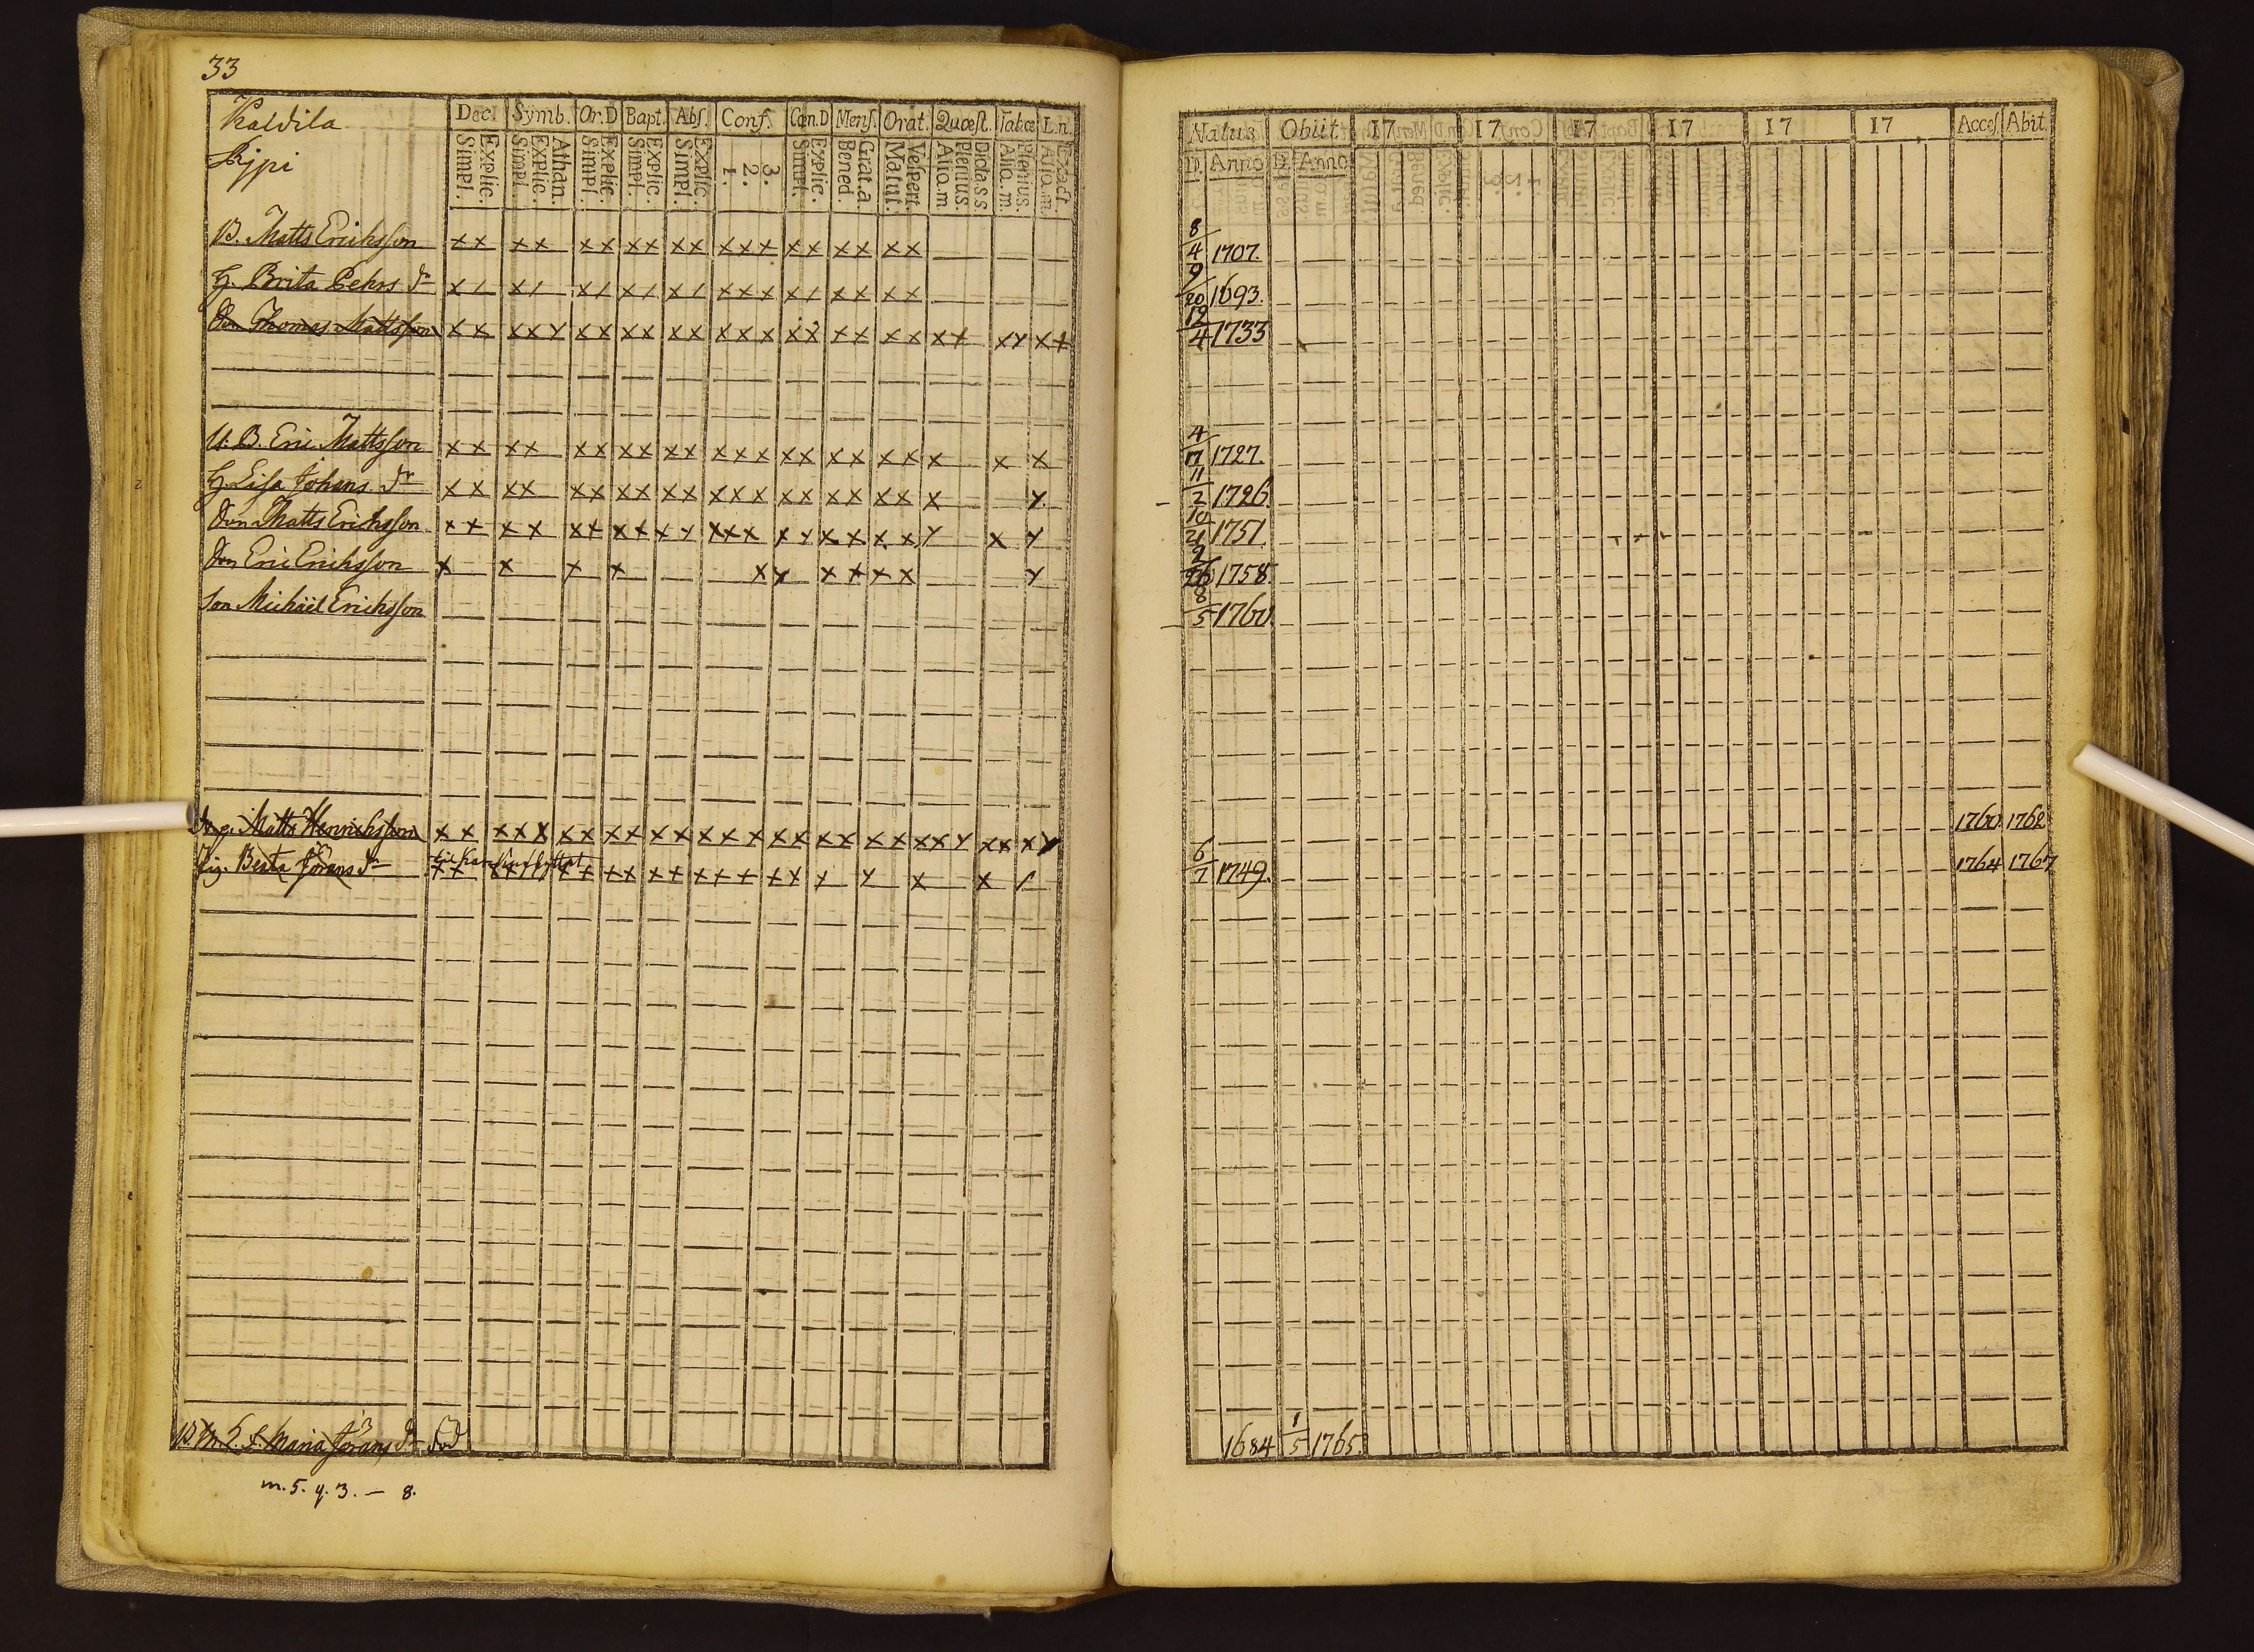 33
Kaldila
Decl Symb. Or.D Bapt. Abs. Conf. Can.D Mens. Orat. Quæst. Tabcæ L.n.
Simpl. Explic. Simpl. Explic. Athan. Simpl. Explic. Simpl. Explic. Simpl. Explic. 1. 2. 3. Simpl. Explic. Bened. Grat.a. Matut. Vespert. Aliq.m Plenius. Alia.m. Plenius. Aliq.m Exact
B. Matts Eriksson xx xx xx xx xx xxx xx xx xx
H. Brita Pehrs dr x/ x/ x/ x/ x/ xxx x/ xx xx
Son Thomas Mattsson xx xxx xx xx xx xxx xx xx xx xx xx xx
U. B. Eric Mattsson xx xx xx xx xx xxx xx xx xx x x x
H. Lisa Johans dr xx xx xx xx xx xxx xx xx xx x x
Son Matts Erichsson xx xx xx xx xx xxx xx xx xx x x x
Son Eric Erichsson x x x x x x xx xx x
Son Michäel Erichsson
Matts Henrichsson xx xxx xx xx xx xxx xx xx xx xxx xx xx
Pig. Beata Jörans dr xx xx xx xx xx xxx xx x x x x /
Maria Jörans dr död
m. 5. q. 3. — 8.
Natus Obiit. 17 17 17 17 17 17 Acces. Abit.
D. Anno D. Anno
8/4 1707.
9/20 1693.
12/4 1733
4/17 1727.
11/2 1726
10/21 1751.
2/26 1758
8/5 1760.
1760 1762
6/7 1749. 1764 1767
1684 1/5 1765.